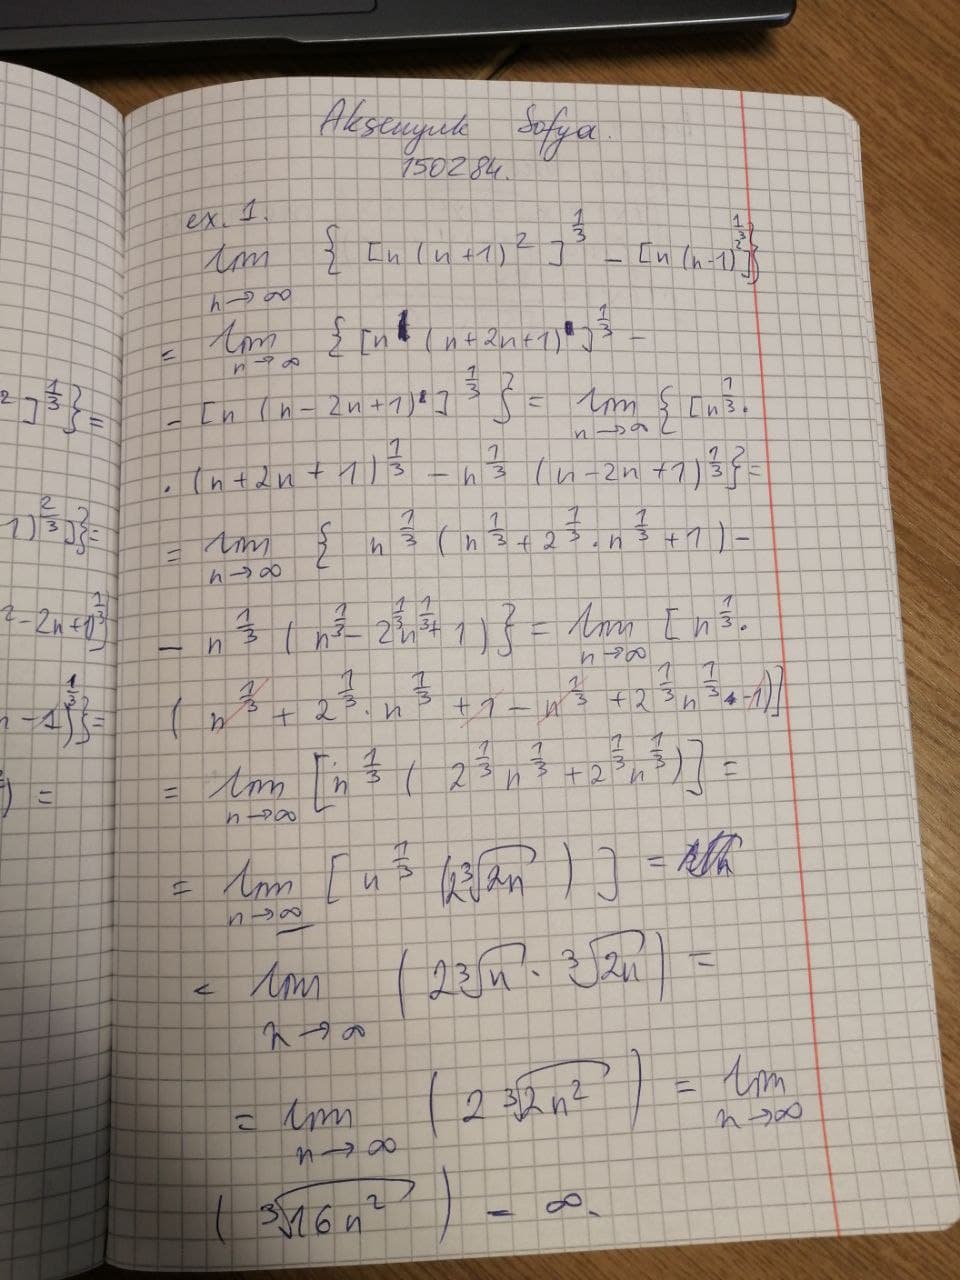 Aksenyuk Sofya.
150284.
ex. 1.
lim n→∞ { [n (n+1)² ]^{1/3} − [n (n-1)²]^{1/3} }
= lim n→∞ { [n (n+2n+1) ]^{1/3} −
− [n (n − 2n+1) ]^{1/3} } = lim n→∞ { [n^{1/3} ·
· (n+2n + 1)^{1/3} − n^{1/3} (n−2n +1)^{1/3} } =
= lim n→∞ { n^{1/3} ( n^{1/3} + 2^{1/3} · n^{1/3} + 1 ) −
− n^{1/3} ( n^{1/3} − 2^{1/3} n^{1/3} + 1 ) } = lim n→∞ [ n^{1/3} ·
( n^{1/3} + 2^{1/3} · n^{1/3} + 1 − n^{1/3} + 2^{1/3} n^{1/3} - 1 ) ]
= lim n→∞ [ n^{1/3} ( 2^{1/3} n^{1/3} + 2^{1/3} n^{1/3} ) ] =
= lim n→∞ [ n^{1/3} ( 2 ∛2n ) ] =
= lim n→∞ ( 2 ∛n · ∛2n ) =
= lim n→∞ ( 2 ∛2n² ) = lim n→∞
( ∛16n² ) = ∞.
² ]^{1/3} } =
1)^{2/3} ] } =
² - 2n+1)^{1/3} ]
n - 1)^{1/3} } =
) =